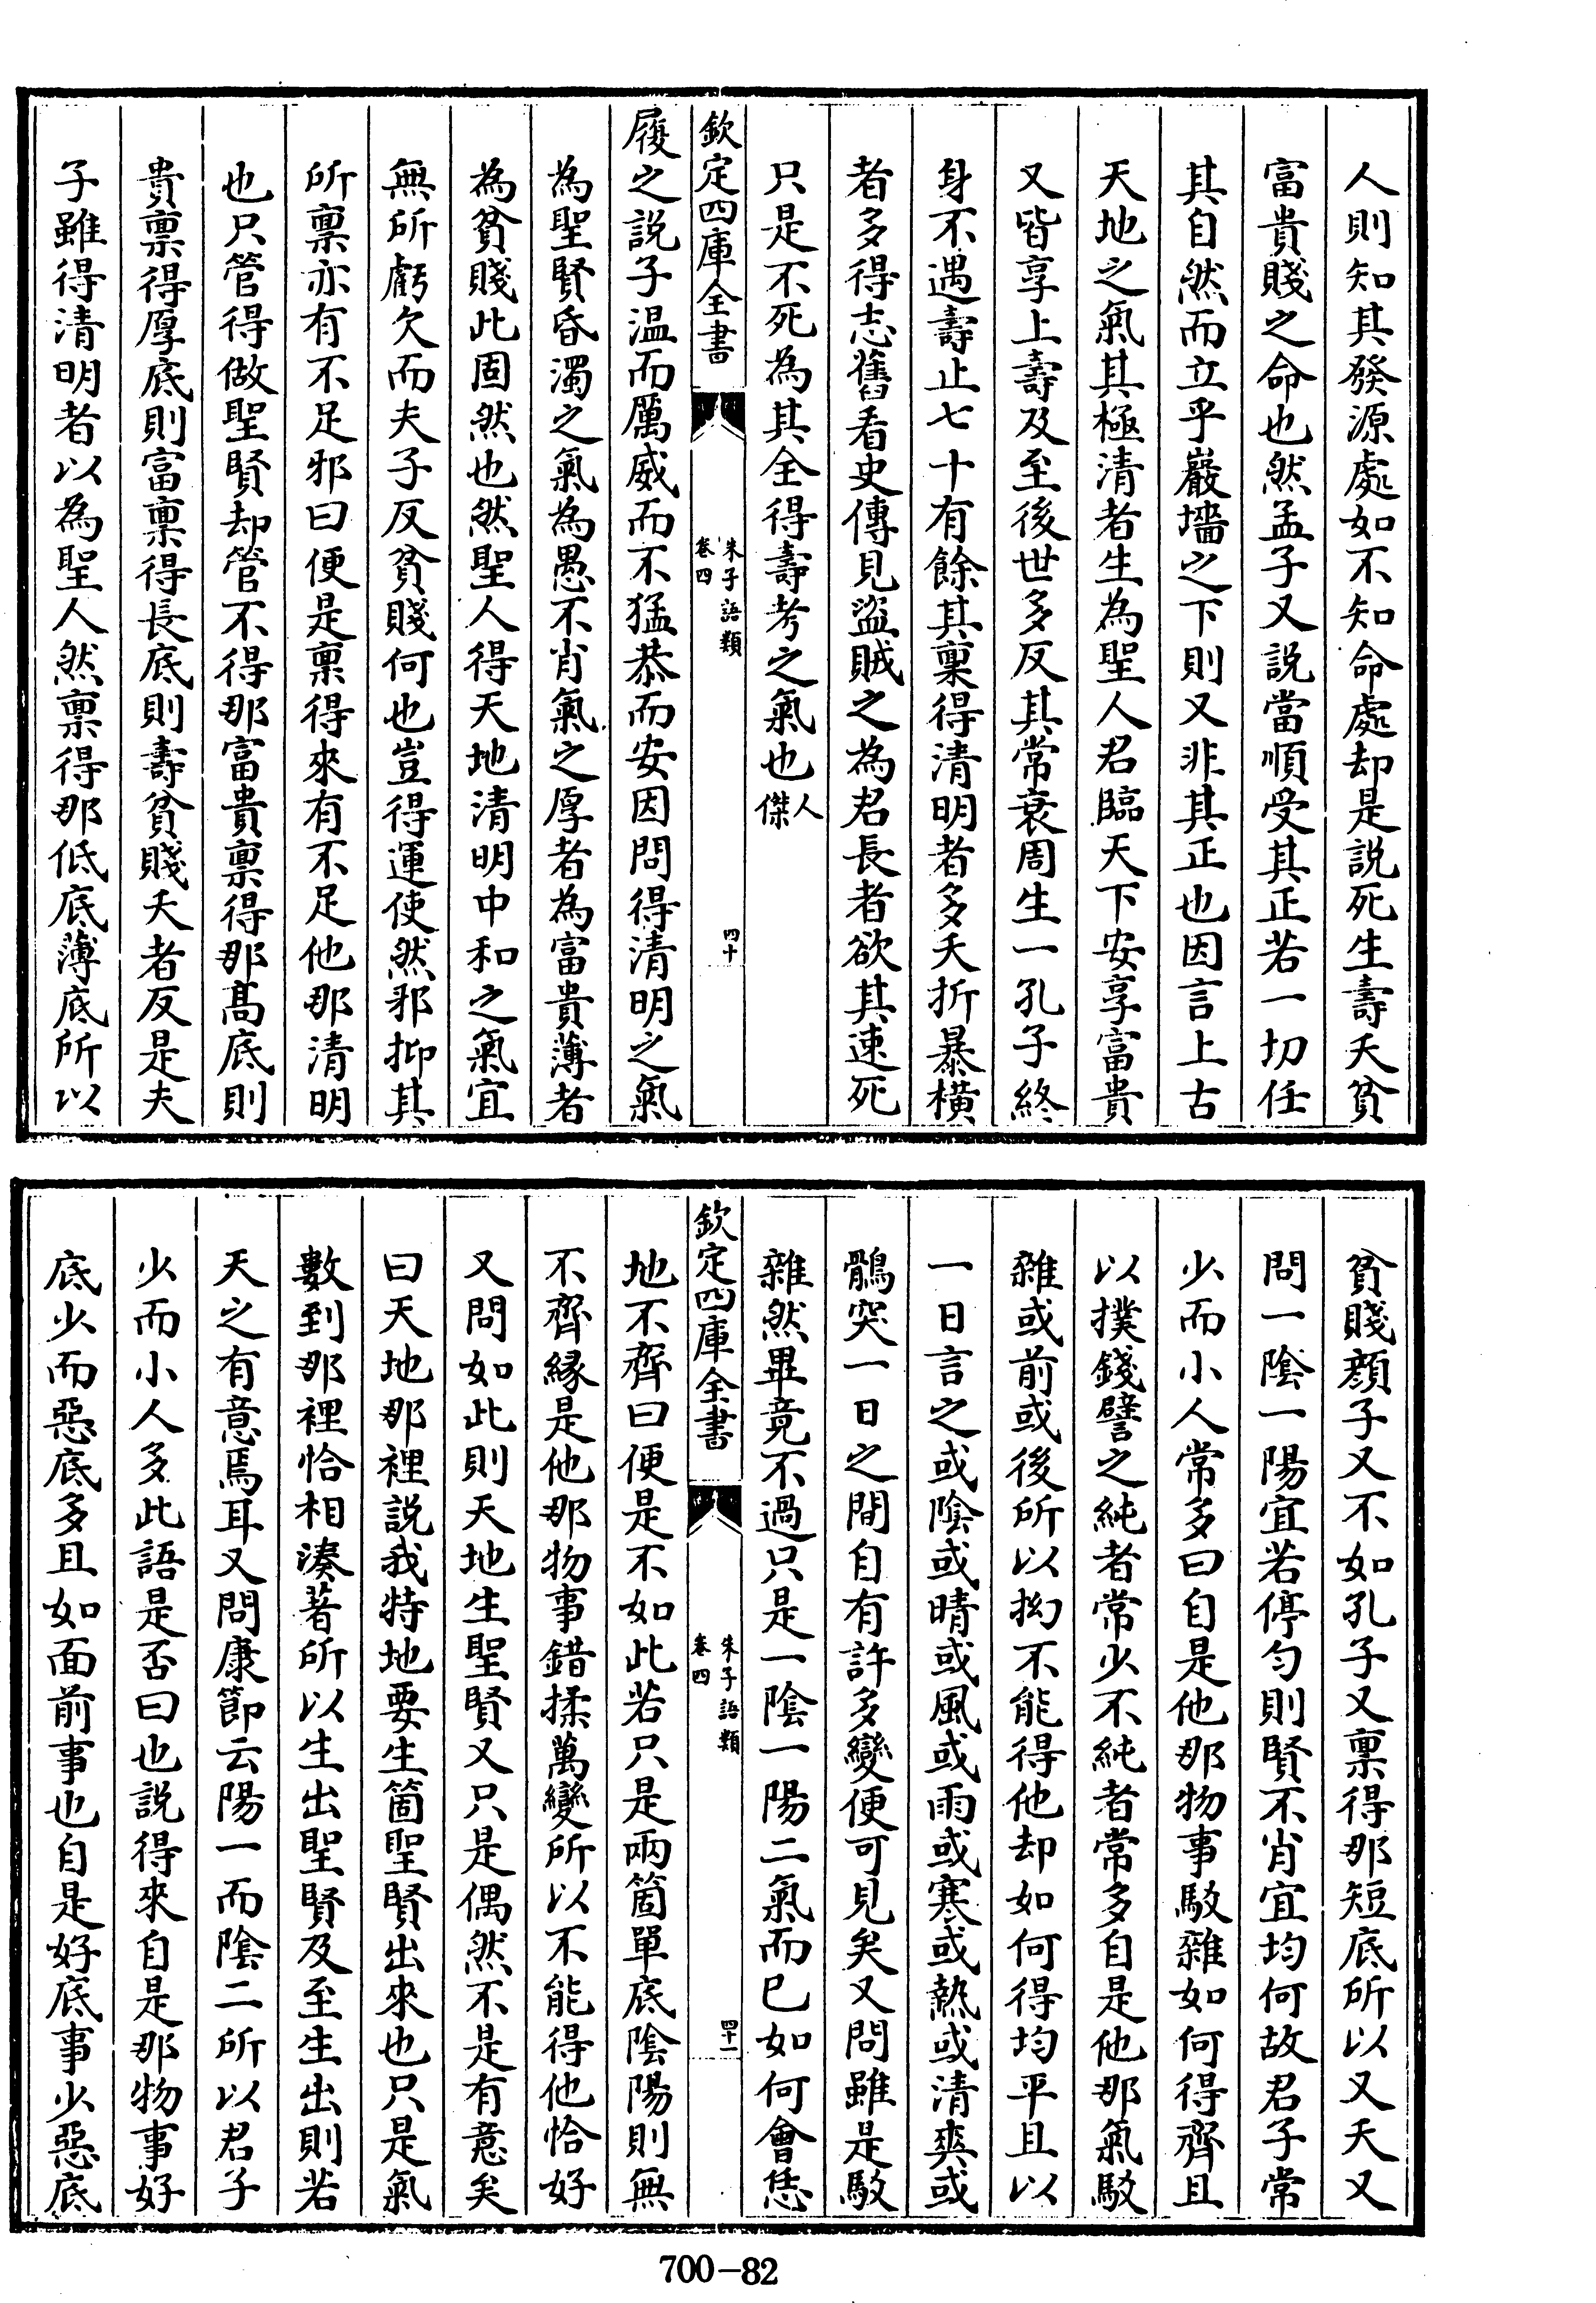 人則知其發源處如不知命處却是説死生壽夭貧
富貴賤之命也然孟子又説當順受其正若一切任
其自然而立乎巖墻之下則又非其正也因言上古
天地之氣其極清者生為聖人君臨天下安享富貴
又皆享上壽及至後世多反其常衰周生一孔子終
身不遇壽止七十有餘其稟得清明者多夭折暴横
者多得志舊看史傳見盜賊之為君長者欲其速死
只是不死為其全得壽考之氣也人傑
欽定四庫全書
朱子語類
卷四
四十
履之説子温而厲威而不猛恭而安因問得清明之氣
為聖賢昏濁之氣為愚不肖氣之厚者為富貴薄者
為貧賤此固然也然聖人得天地清明中和之氣宜
無所虧欠而夫子反貧賤何也豈得運使然邪抑其
所稟亦有不足邪曰便是稟得來有不足他那清明
也只管得做聖賢却管不得那富貴稟得那髙底則
貴稟得厚底則富稟得長底則壽貧賤夭者反是夫
子雖得清明者以為聖人然稟得那低底薄底所以
貧賤顔子又不如孔子又稟得那短底所以又夭又
問一陰一陽宜若停匀則賢不肖宜均何故君子常
少而小人常多曰自是他那物事駁雜如何得齊且
以撲錢譬之純者常少不純者常多自是他那氣駁
雜或前或後所以拗不能得他却如何得均平且以
一日言之或陰或晴或風或雨或寒或熱或清爽或
鶻突一日之間自有許多變便可見矣又問雖是駁
雜然畢竟不過只是一陰一陽二氣而已如何會恁
欽定四庫全書
朱子語類
卷四
四十一
地不齊曰便是不如此若只是兩箇單底陰陽則無
不齊縁是他那物事錯揉萬變所以不能得他恰好
又問如此則天地生聖賢又只是偶然不是有意矣
曰天地那裡説我特地要生箇聖賢出來也只是氣
數到那裡恰相湊著所以生出聖賢及至生出則若
天之有意焉耳又問康節云陽一而陰二所以君子
少而小人多此語是否曰也説得來自是那物事好
底少而惡底多且如面前事也自是好底事少惡底
700-82